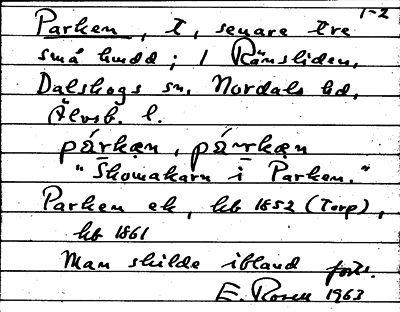 1-2
Parken, t, senare tre
små hmdd; i Ränsliden,
Dalskogs sn. Nordals hd,
Älvsb. l.
párkæn, párrkæn
"Skomakarn i Parken."
Parken ek, hb 1852 (Torp),
hb 1861
Man skilde ibland forts.
E. Rosen 1963